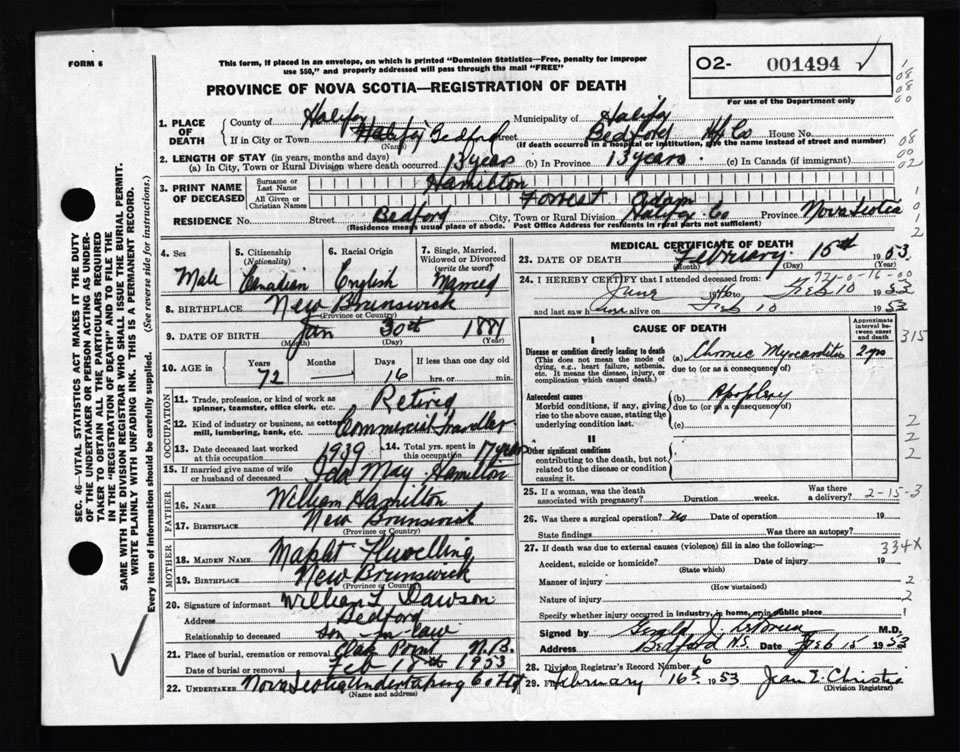 FORM 6
This form, if placed in an envelope, on which is printed "Dominion Statistics—Free, penalty for improper
use $50," and properly addressed will pass through the mail "FREE"
PROVINCE OF NOVA SCOTIA—REGISTRATION OF DEATH
O2- 001494
For use of the Department only
1. PLACE OF DEATH
County of Halifax Municipality of Halifax
If in City or Town Halifax Bedford Street Bedford Hfx Co House No.
(Name) (If death occurred in a hospital or institution, give the name instead of street and number)
2. LENGTH OF STAY (in years, months and days)
(a) In City, Town or Rural Division where death occurred 13 years (b) In Province 13 years. (c) In Canada (if immigrant)
3. PRINT NAME OF DECEASED
Surname or Last Name Hamilton
All Given or Christian Names Forrest Adam
RESIDENCE No. Street Bedford City, Town or Rural Division Halifax Co Province Nova Scotia
(Residence means usual place of abode. Post Office Address for residents in rural parts not sufficient)
4. Sex Male
5. Citizenship (Nationality) Canadian
6. Racial Origin English
7. Single, Married, Widowed or Divorced (write the word) Married
8. BIRTHPLACE New Brunswick
(Province or Country)
9. DATE OF BIRTH Jan 30th 1881
(Month) (Day) (Year)
10. AGE in Years 72 Months — Days 16 If less than one day old hrs. or min.
OCCUPATION
11. Trade, profession, or kind of work as spinner, teamster, office clerk, etc. Retired
12. Kind of industry or business, as cotton mill, lumbering, bank, etc. Commercial Traveller
13. Date deceased last worked at this occupation 1939
14. Total yrs. spent in this occupation 17 years
15. If married give name of wife or husband of deceased Ida May Hamilton
FATHER
16. NAME William Hamilton
17. BIRTHPLACE New Brunswick
(Province or Country)
MOTHER
18. MAIDEN NAME
19. BIRTHPLACE New Brunswick
(Province or Country)
20. Signature of informant William L Dawson
Address Bedford
Relationship to deceased son-in-law
21. Place of burial, cremation or removal Oak Point N.B.
Date of burial or removal Feb 18th 1953
22. UNDERTAKER Nova Scotia Undertaking Co Ltd
(Name and address)
MEDICAL CERTIFICATE OF DEATH
23. DATE OF DEATH February 15th 1953
(Month) (Day) (Year)
72-0-16-00
24. I HEREBY CERTIFY that I attended deceased from:
June 19 to Feb 10 1953
and last saw h alive on Feb 10 1953
CAUSE OF DEATH
Approximate interval between onset and death
I
Disease or condition directly leading to death
(This does not mean the mode of dying, e.g., heart failure, asthenia, etc. It means the disease, injury, or complication which caused death.)
(a) Chronic Myocarditis 2 yrs
due to (or as a consequence of)
Antecedent causes
Morbid conditions, if any, giving rise to the above cause, stating the underlying condition last.
(b) Apoplexy
due to (or as a consequence of)
(c)
II
Other significant conditions
contributing to the death, but not related to the disease or condition causing it.
25. If a woman, was the death associated with pregnancy? Duration weeks. Was there a delivery?
2-15-3
26. Was there a surgical operation? No Date of operation 19
State findings Was there an autopsy?
27. If death was due to external causes (violence) fill in also the following:—
Accident, suicide or homicide? Date of injury 19
(State which)
Manner of injury
(How sustained)
Nature of injury
Specify whether injury occurred in industry, in home, or in public place
Signed by Gerald J. M.D.
Address Bedford N.S. Date Feb 15 1953
28. Division Registrar's Record Number 6
29. February 16th 1953 Jean I. Christie
(Division Registrar)
315
334X
SEC. 46—VITAL STATISTICS ACT MAKES IT THE DUTY
OF THE UNDERTAKER OR PERSON ACTING AS UNDER-
TAKER TO OBTAIN ALL THE PARTICULARS REQUIRED
IN THE "REGISTRATION OF DEATH" AND TO FILE THE
SAME WITH THE DIVISION REGISTRAR WHO SHALL ISSUE THE BURIAL PERMIT.
WRITE PLAINLY WITH UNFADING INK. THIS IS A PERMANENT RECORD.
Every item of Information should be carefully supplied. (See reverse side for instructions.)